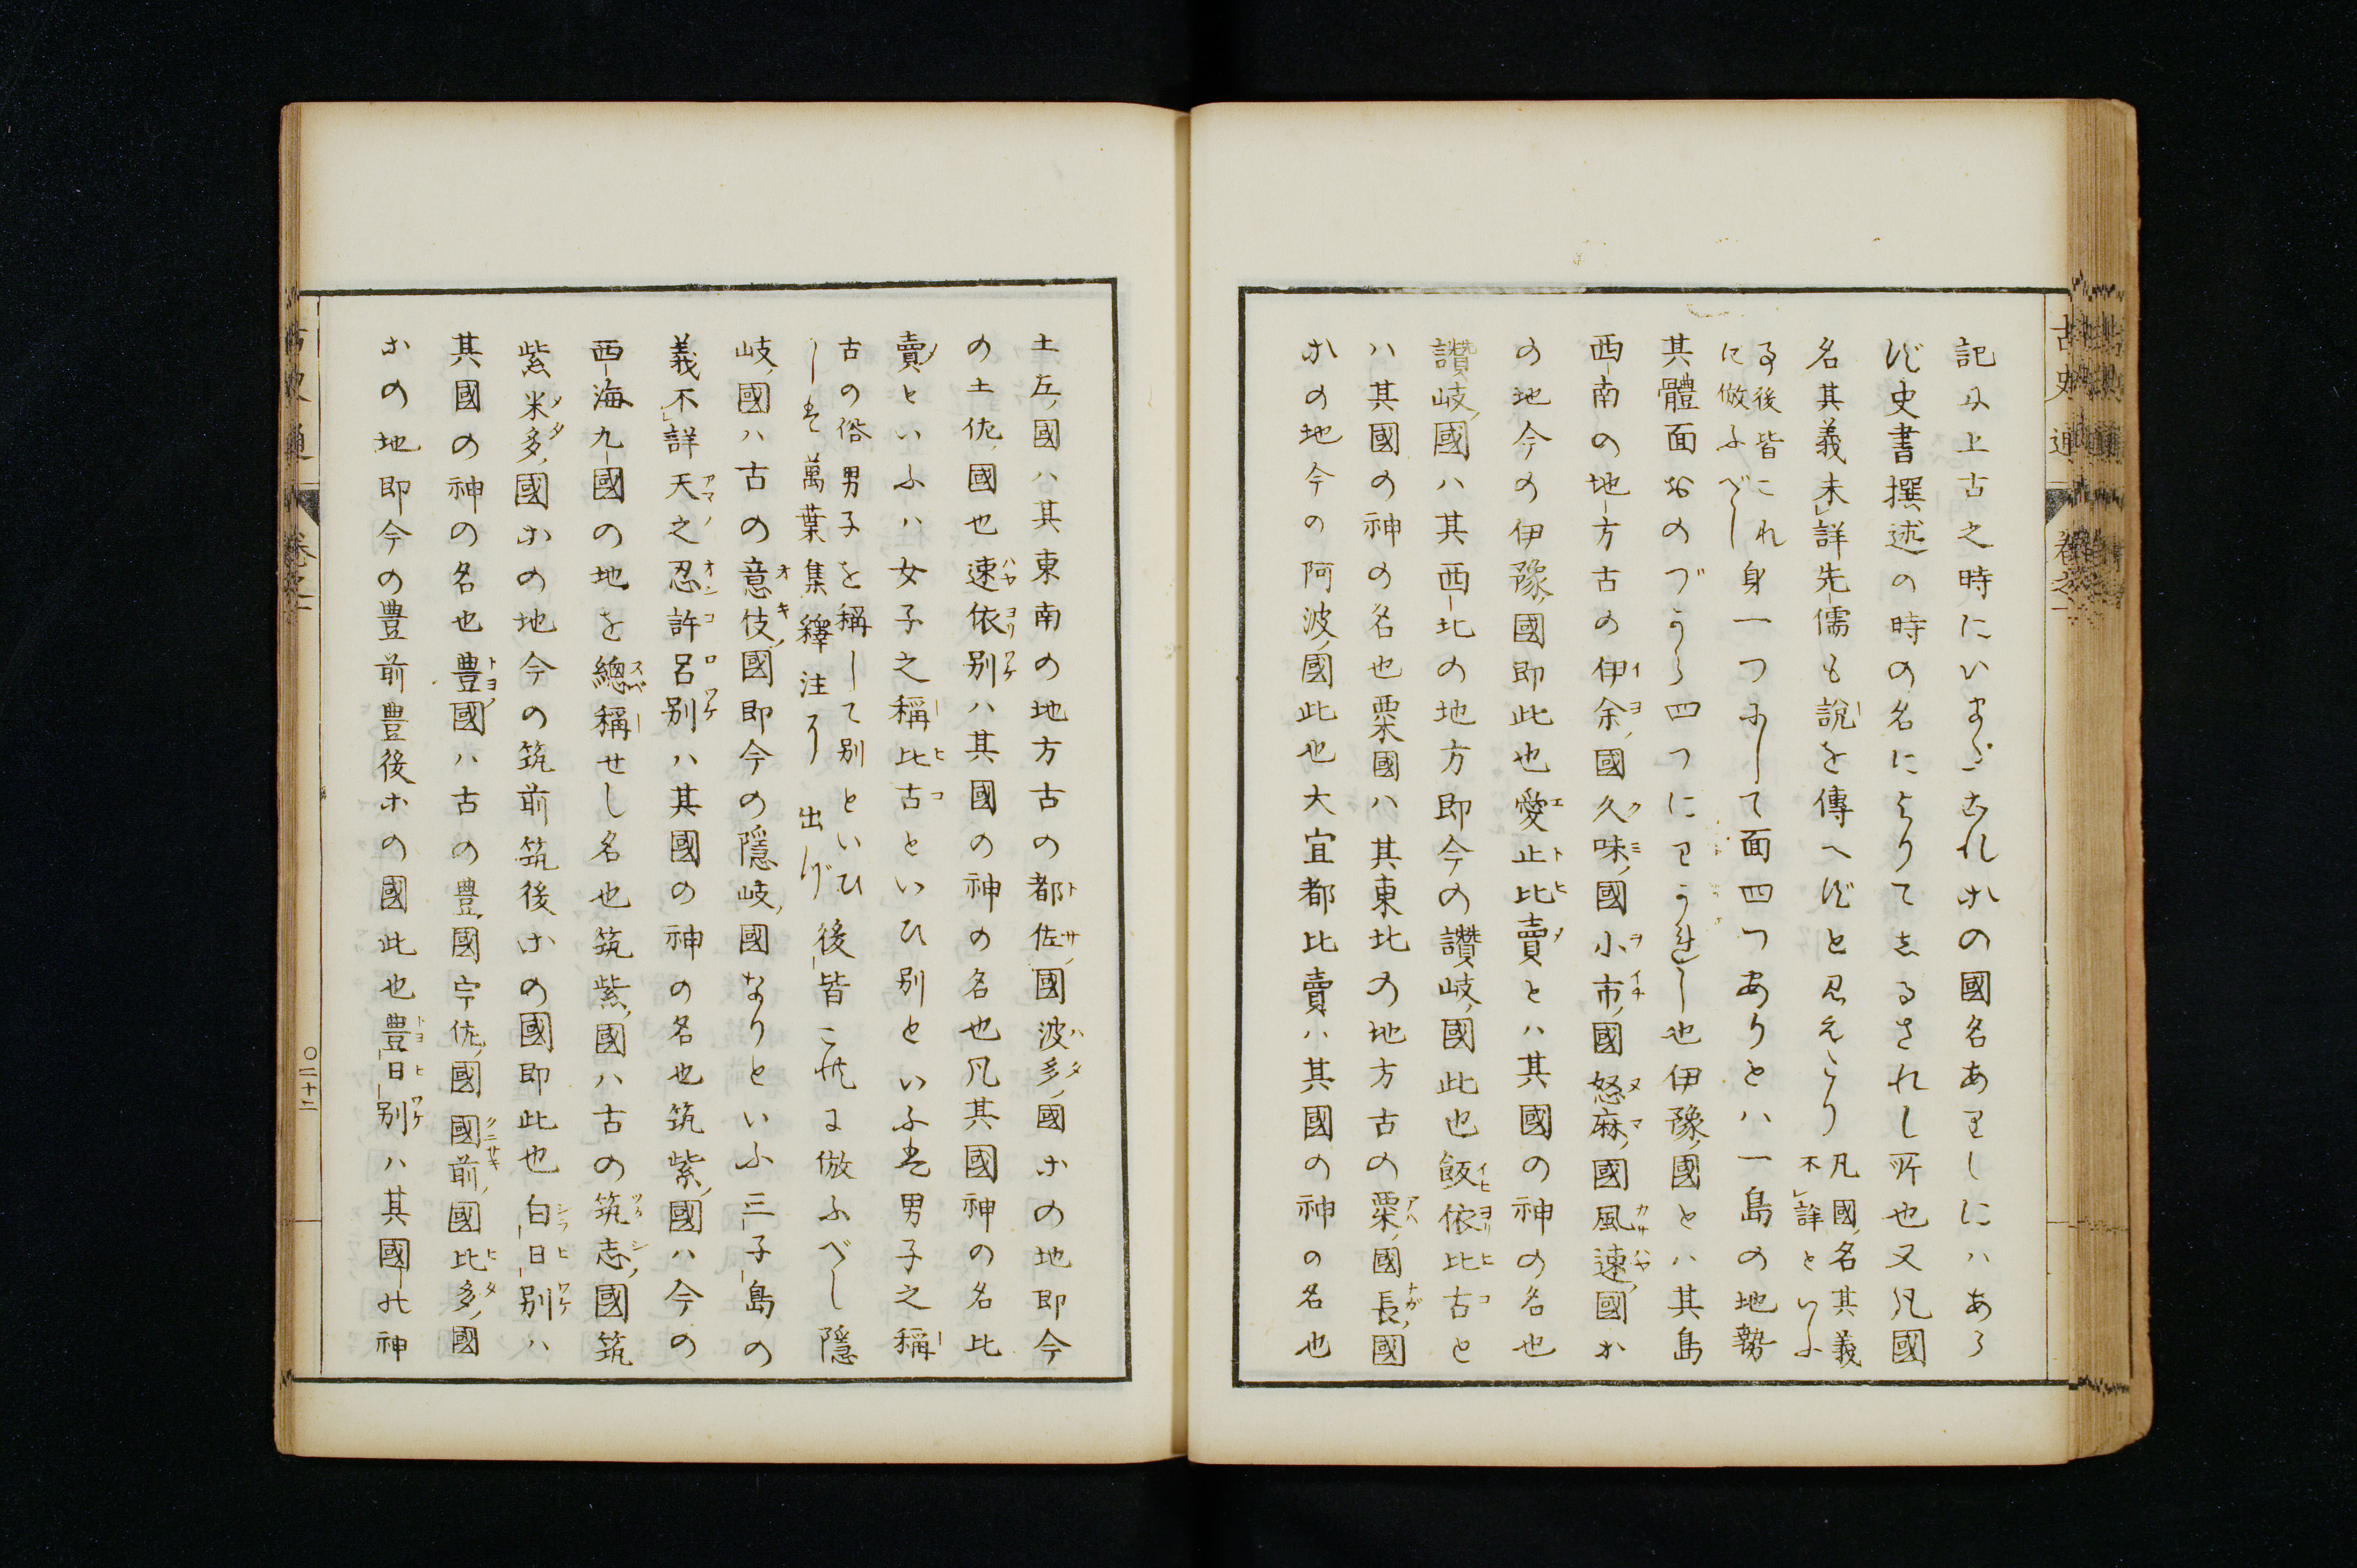 古史通 巻之一
記に上古之時にいまだこれホの國名ありしにハあら
ず史書撰述の時の名によりてしるされし所也又凡國
名其義未詳先儒も說を傳へずと見えたり 凡國名其義不詳といふ
る後皆これに倣ふべし 身一つにして面四つありとハ一島の地勢
其體面おのづから四つにわかれし也伊豫國とハ其島
西南の地方古の伊余國久味國小市國怒麻國風速國ホ
の地今の伊豫國即此也愛止比賣とハ其國の神の名也
讚岐國ハ其西北の地方即今の讚岐國此也飯依比古と
ハ其國の神の名也粟國ハ其東北の地方古の粟國長國
ホの地今の阿波國此也大宜都比賣ハ其國の神の名也
土左國ハ其東南の地方古の都佐國波多國ホの地即今
の土佐國也速依別ハ其國の神の名也凡其國神の名比
賣といふハ女子之稱比古といひ別といふ是男子之稱
古の俗男子を稱して別といひし是萬葉集釋注に出づ 後皆これに倣ふべし隱
岐國ハ古の意伎國即今の隱岐國なりといふ三子島の
義不詳天之忍許呂別ハ其國の神の名也筑紫國ハ今の
西海九國の地を總稱せし名也筑紫國ハ古の筑志國筑
紫米多國ホの地今の筑前筑後ホの國即此也白日別ハ
其國の神の名也豊國ハ古の豊國宇佐國國前國比多國
ホの地即今の豊前豊後ホの國此也豊日別ハ其國の神
古史通 巻之一
〇二十二